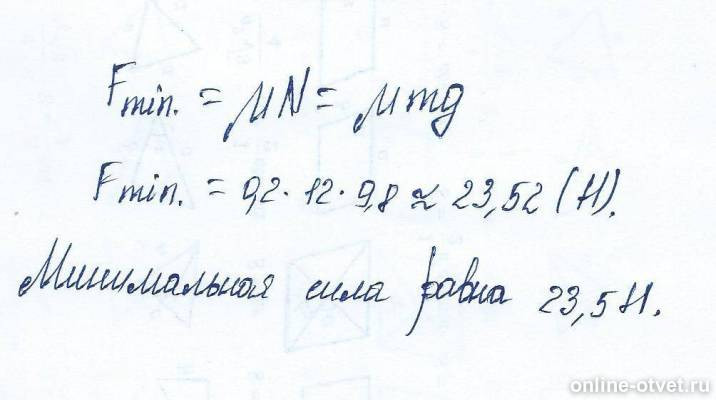 Fmin. = μN = μmg
Fmin. = 0,2 · 12 · 9,8 ≈ 23,52 (Н).
Минимальная сила равна 23,5 Н.
online-otvet.ru